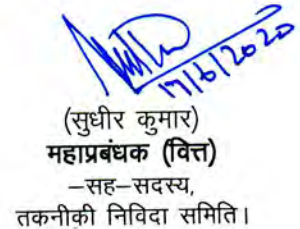 17/6/2020
(सुधीर कुमार)
महाप्रबंधक (वित्त)
–सह–सदस्य,
तकनीकी निविदा समिति।